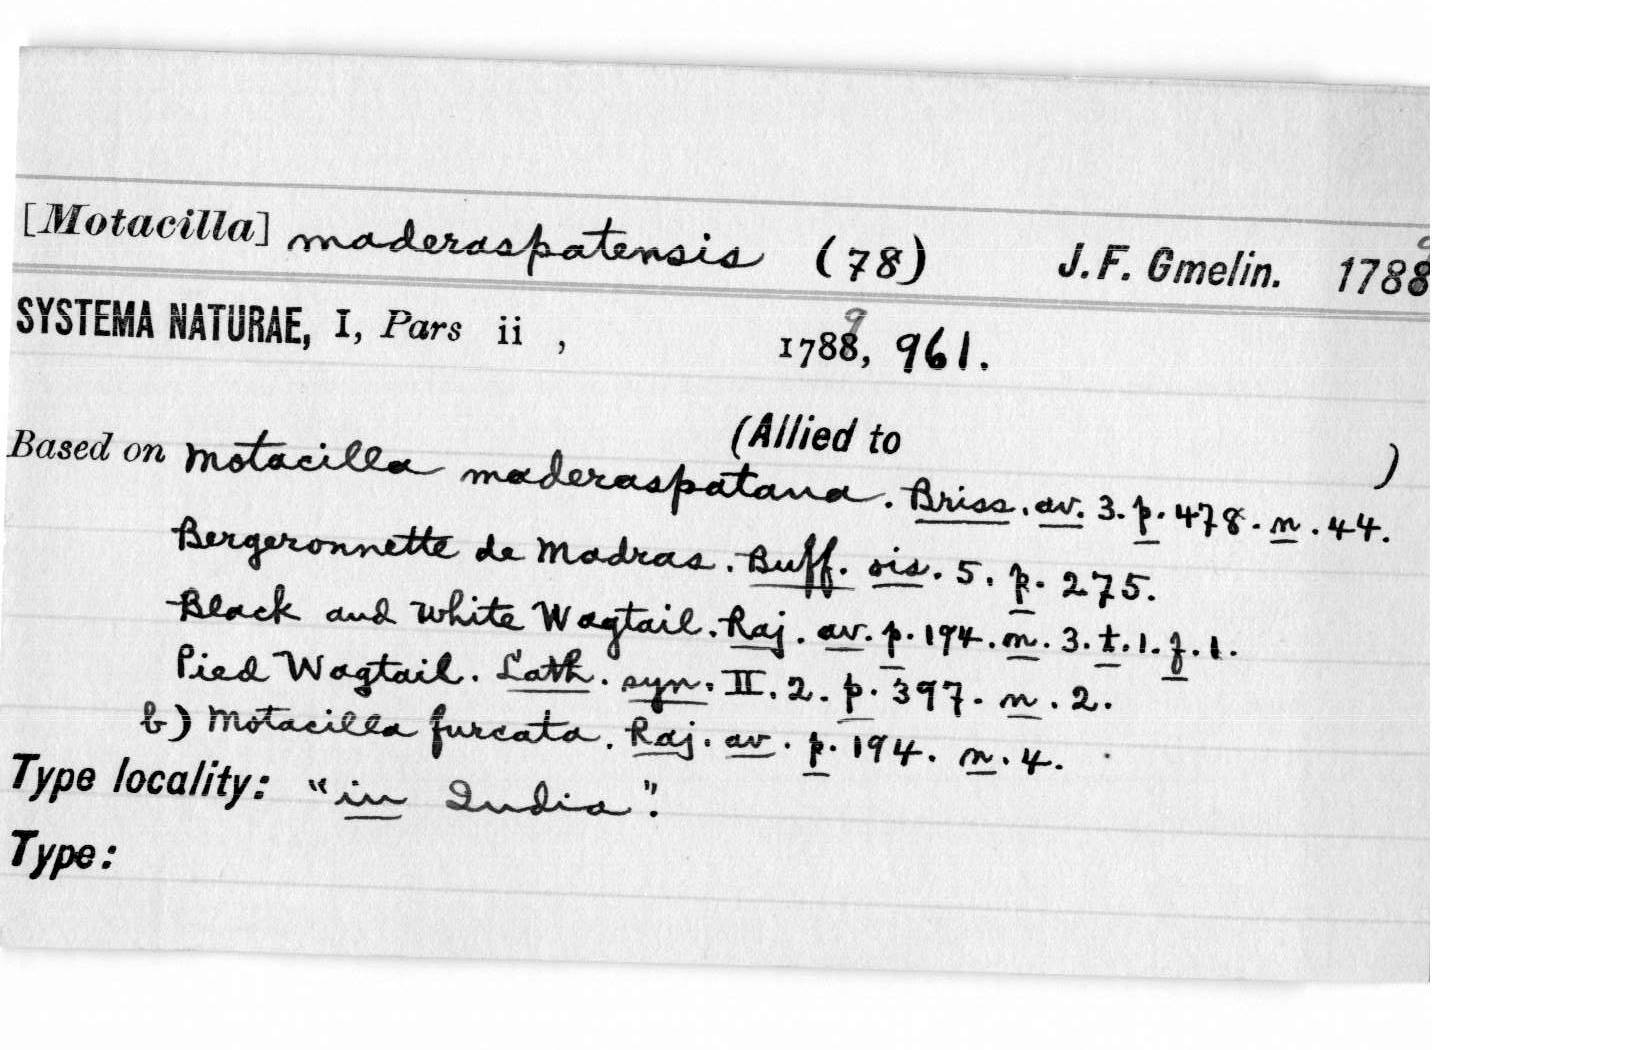 [Motacilla] maderaspatensis (78) J. F. Gmelin. 1788 9
SYSTEMA NATURAE, I, Pars ii , 1788 9, 961.
(Allied to )
Based on Motacilla maderaspatana. Briss. av. 3. p. 478. n. 44.
Bergeronnette de Madras. Buff. ois. 5. p. 275.
Black and white Wagtail. Raj. av. p. 194. n. 3. t. 1. f. 1.
Pied Wagtail. Lath. syn. II. 2. p. 397. n. 2.
b) Motacilla furcata. Raj. av. p. 194. n. 4.
Type locality: "in India".
Type: